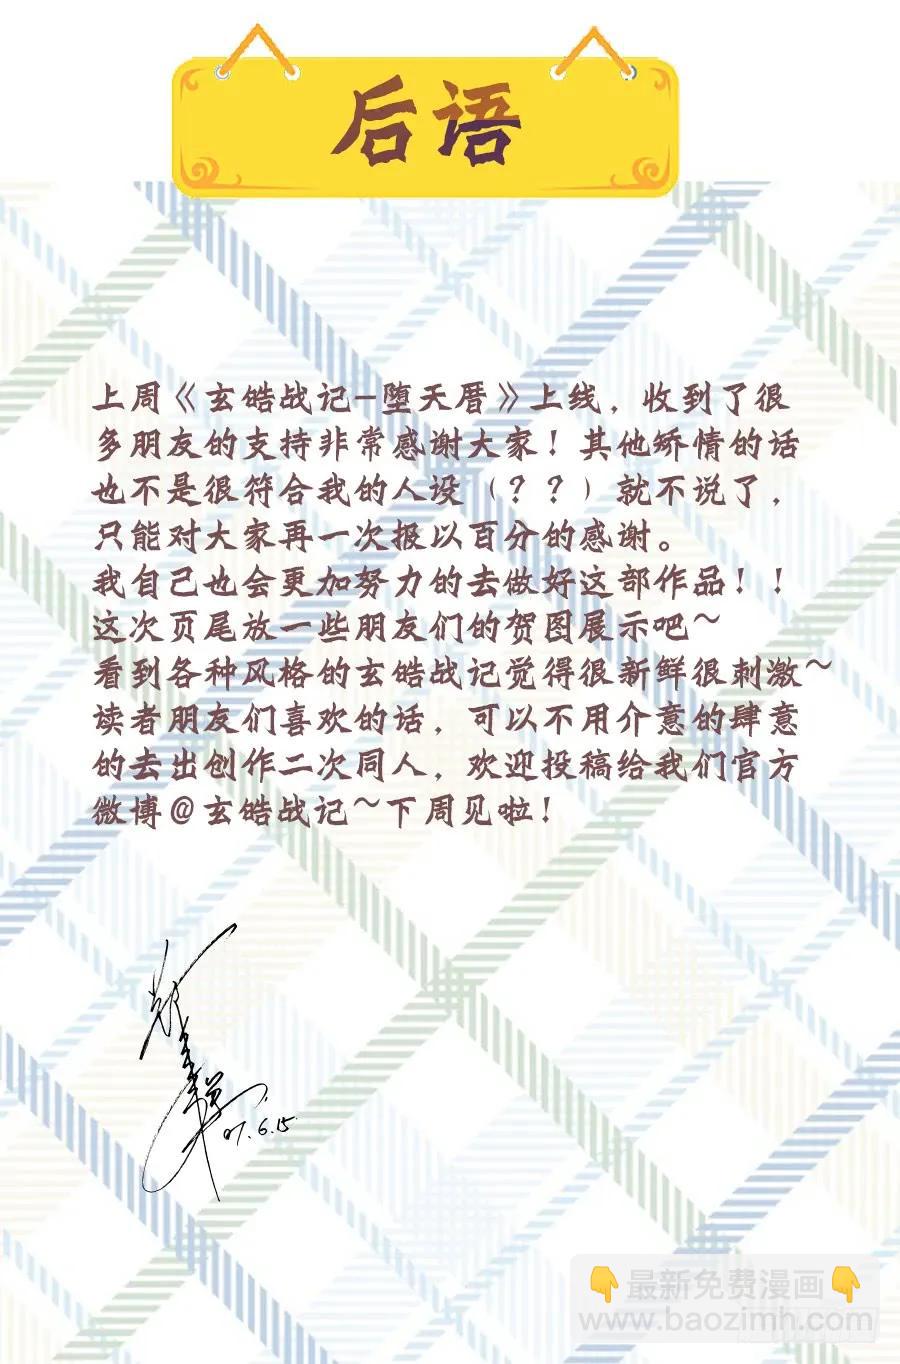 后语
上周《玄皓战记-堕天厝》上线，收到了很
多朋友的支持非常感谢大家！其他矫情的话
也不是很符合我的人设（？？）就不说了，
只能对大家再一次报以百分的感谢。
我自己也会更加努力的去做好这部作品！！
这次页尾放一些朋友们的贺图展示吧~
看到各种风格的玄皓战记觉得很新鲜很刺激~
读者朋友们喜欢的话，可以不用介意的肆意
的去出创作二次同人，欢迎投稿给我们官方
微博@玄皓战记~下周见啦！
07.6.15.
👇最新免费漫画👇
www.baozimh.com